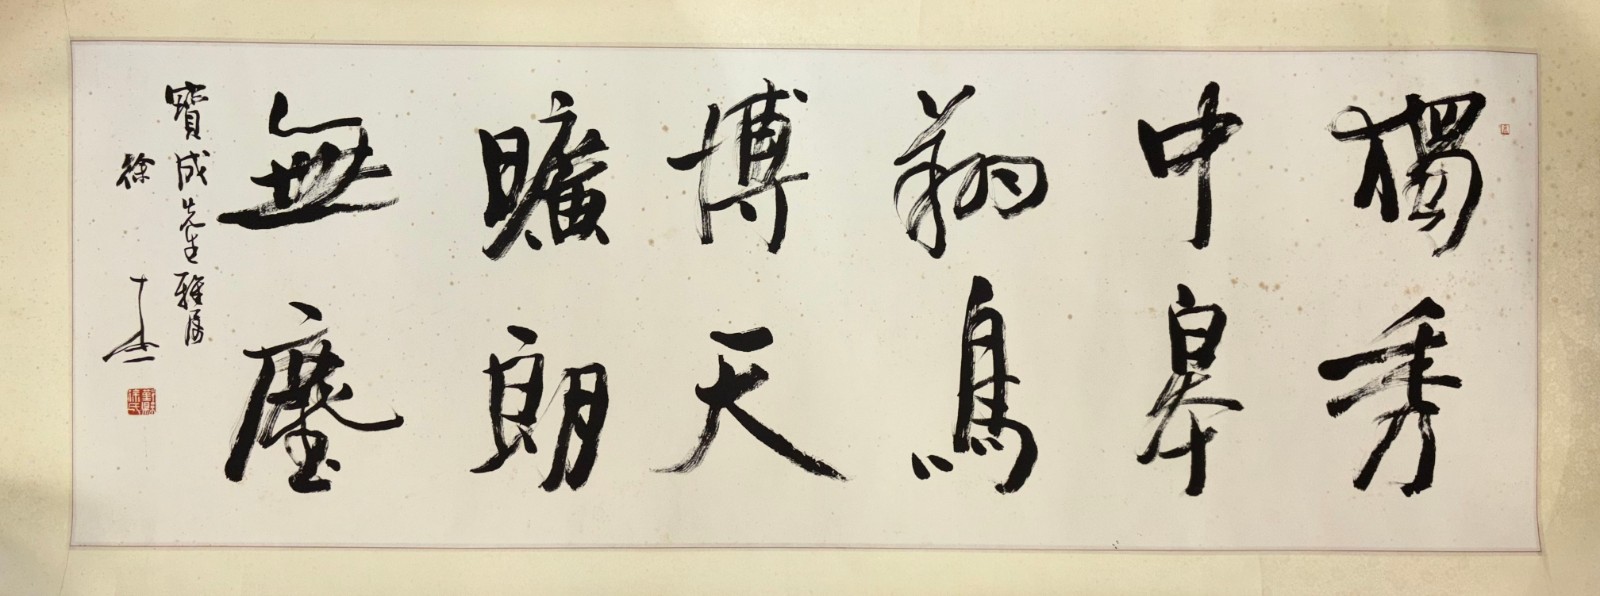 獨秀
中皋
翔鳥
博天
曠朗
無塵
寶成先生雅屬
徐